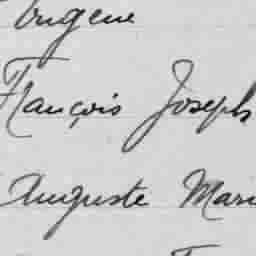 Eugène
François Joseph
Auguste Mari